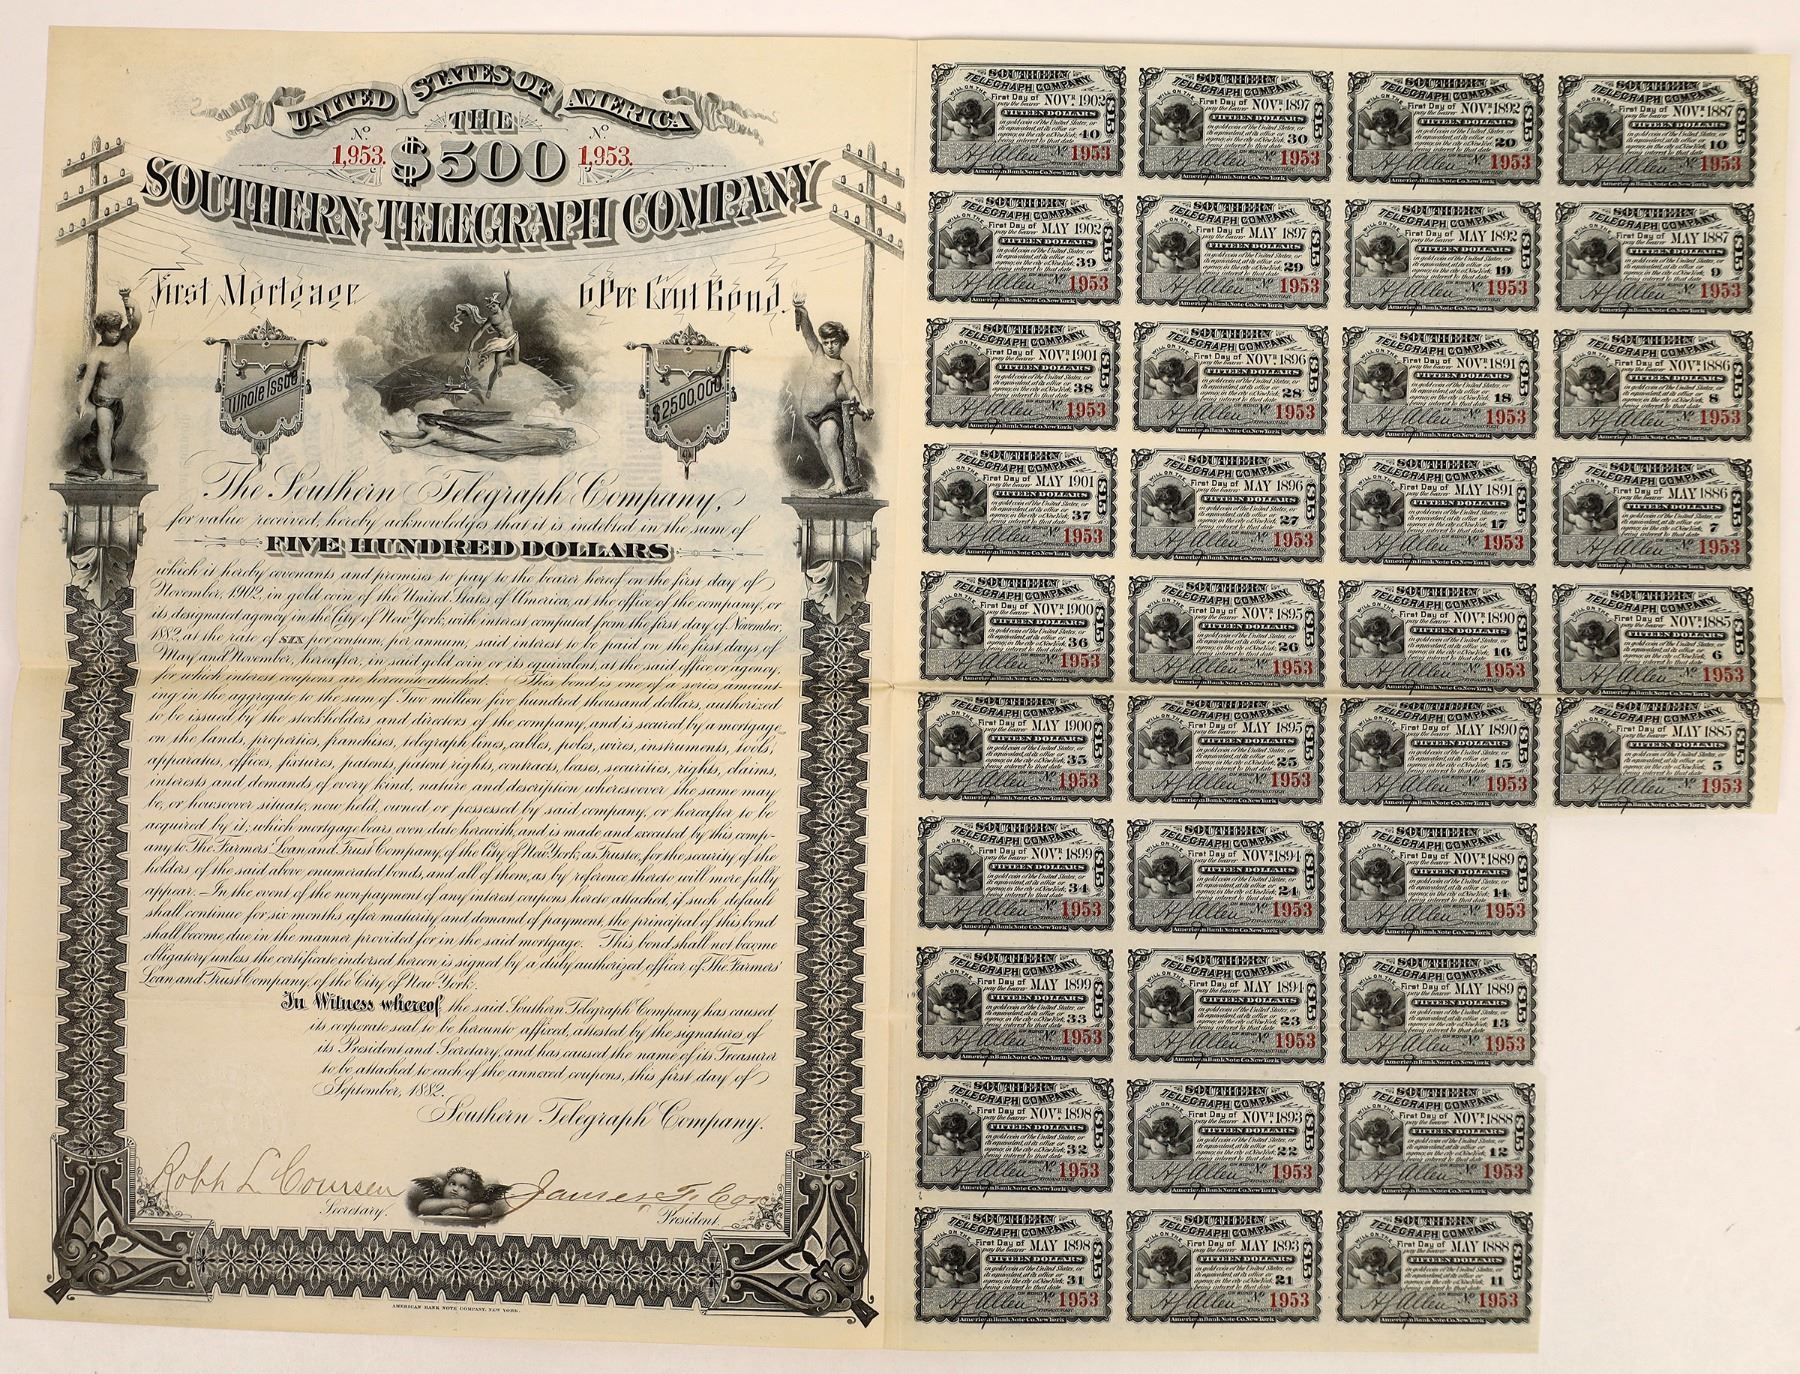 UNITED STATES OF AMERICA
No THE No
1,953. $500 1,953.
SOUTHERN TELEGRAPH COMPANY
First Mortgage 6 Per Cent Bond.
Whole Issue $2500,000
The Southern Telegraph Company,
for value received, hereby acknowledges that it is indebted in the sum of
FIVE HUNDRED DOLLARS
which it hereby covenants and promises to pay to the bearer hereof on the first day of
November, 1902, in gold coin of the United States of America, at the office of the company, or
its designated agency in the City of New York, with interest computed from the first day of November,
1882, at the rate of SIX per centum, per annum, said interest to be paid on the first days of
May and November, hereafter, in said gold coin or its equivalent, at the said office or agency,
for which interest coupons are hereunto attached. This bond is one of a series amount-
ing in the aggregate to the sum of Two million five hundred thousand dollars, authorized
to be issued by the stockholders and directors of the company, and is secured by a mortgage
on the lands, properties, franchises, telegraph lines, cables, poles, wires, instruments, tools,
apparatus, offices, fixtures, patents, patent rights, contracts, leases, securities, rights, claims,
interests and demands of every kind, nature and description wheresoever the same may
be, or howsoever situate, now held, owned or possessed by said company, or hereafter to be
acquired by it; which mortgage bears even date herewith, and is made and executed by this comp-
any to The Farmers' Loan and Trust Company, of the City of New York, as Trustee, for the security of the
holders of the said above enumerated bonds, and all of them, as by reference thereto will more fully
appear. In the event of the nonpayment of any interest coupons hereto attached, if such default
shall continue for six months after maturity and demand of payment, the principal of this bond
shall become due in the manner provided for in the said mortgage. This bond shall not become
obligatory unless the certificate indorsed hereon is signed by a duly authorized officer of The Farmers'
Loan and Trust Company, of the City of New York.
In Witness whereof, the said Southern Telegraph Company has caused
its corporate seal to be hereunto affixed, attested by the signatures of
its President and Secretary, and has caused the name of its Treasurer
to be attached to each of the annexed coupons, this first day of
September, 1882.
Southern Telegraph Company.
Robt L Coursen James F. Cox
Secretary. President.
AMERICAN BANK NOTE COMPANY, NEW YORK.
SOUTHERN
TELEGRAPH COMPANY,
WILL ON THE First Day of NOVR 1902
pay the bearer
FIFTEEN DOLLARS $15
in gold coin of the United States, or
its equivalent, at its office or
agency, in the city of New York, 40
being interest to that date
ON BOND No 1953
H J Allen
TREASURER
American Bank Note Co. New York
NOVR 1897 30 1953
NOVR 1892 20 1953
NOVR 1887 10 1953
MAY 1902 39 1953
MAY 1897 29 1953
MAY 1892 19 1953
MAY 1887 9 1953
NOVR 1901 38 1953
NOVR 1896 28 1953
NOVR 1891 18 1953
NOVR 1886 8 1953
MAY 1901 37 1953
MAY 1896 27 1953
MAY 1891 17 1953
MAY 1886 7 1953
NOVR 1900 36 1953
NOVR 1895 26 1953
NOVR 1890 16 1953
NOVR 1885 6 1953
MAY 1900 35 1953
MAY 1895 25 1953
MAY 1890 15 1953
MAY 1885 5 1953
NOVR 1899 34 1953
NOVR 1894 24 1953
NOVR 1889 14 1953
MAY 1899 33 1953
MAY 1894 23 1953
MAY 1889 13 1953
NOVR 1898 32 1953
NOVR 1893 22 1953
NOVR 1888 12 1953
MAY 1898 31 1953
MAY 1893 21 1953
MAY 1888 11 1953